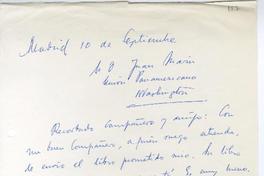 Madrid 10 de Septiembre
Sr D Juan Marín
Unión Panamericana
Washington
Recordado Compañero y amigo: Con
un buen Compañero, a quien ruego atienda,
de envío el libro prometido mío. Su libro
Es muy bueno.